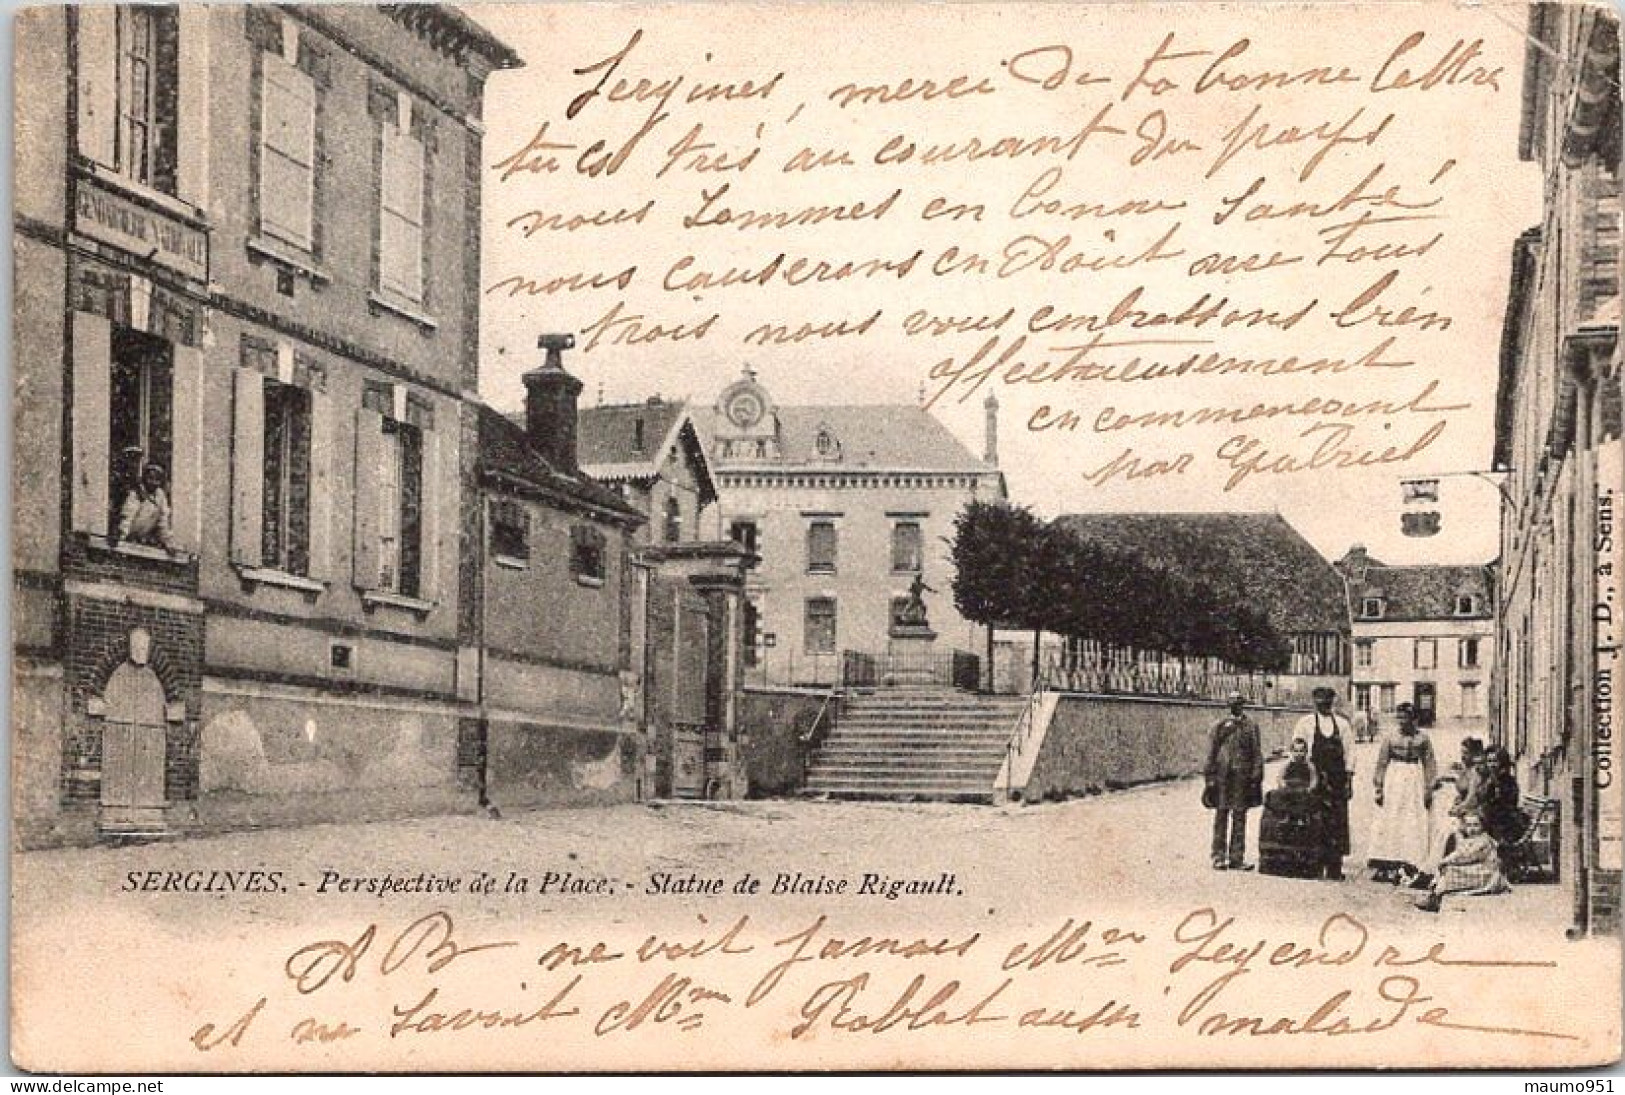 Sergines, merci de ta bonne lettre
tu es très au courant du pays
nous sommes en bonne santé,
nous causerons en Août
tous
trois nous vous embrassons bien
affectueusement
en commençant
par Gabriel
GENDARMERIE NATIONALE
SERGINES. - Perspective de la Place. - Statue de Blaise Rigault.
Collection J. D., à Sens.
A B ne voit jamais Mme Legendre
et ne savait Mme Roblot aussi malade
maumo951